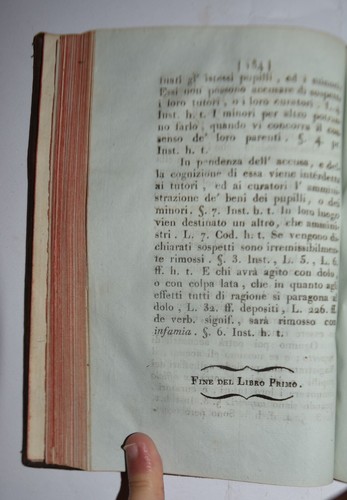 ( 184 )
tuati gl' istessi pupilli, ed i minori.
Essi non possono accusare di sospetto
i loro tutori, o i loro curatori. L.
Inst. h. t. I minori per altro
no farlo, quando vi concorra il con
senso de' loro parenti. §. 4.
Inst. h. t.
In pendenza dell' accusa, e del
la cognizione di essa viene interdetta
ai tutori, ed ai curatori l' ammini
strazione de' beni dei pupilli, o de
minori. §. 7. Inst. h. t. In loro luogo
vien destinato un altro, che ammini
stri. L. 7. Cod. h. t. Se vengono di
chiarati sospetti sono irremissibilmen
te rimossi. §. 3. Inst., L. 5., L. 6.
ff. h. t. E chi avrà agito con dolo,
o con colpa lata, che in quanto agli
effetti tutti di ragione si paragona al
dolo, L. 32. ff. depositi, L. 226. ff.
de verb. signif., sarà rimosso con
infamia. §. 6. Inst. h. t.
FINE DEL LIBRO PRIMO.